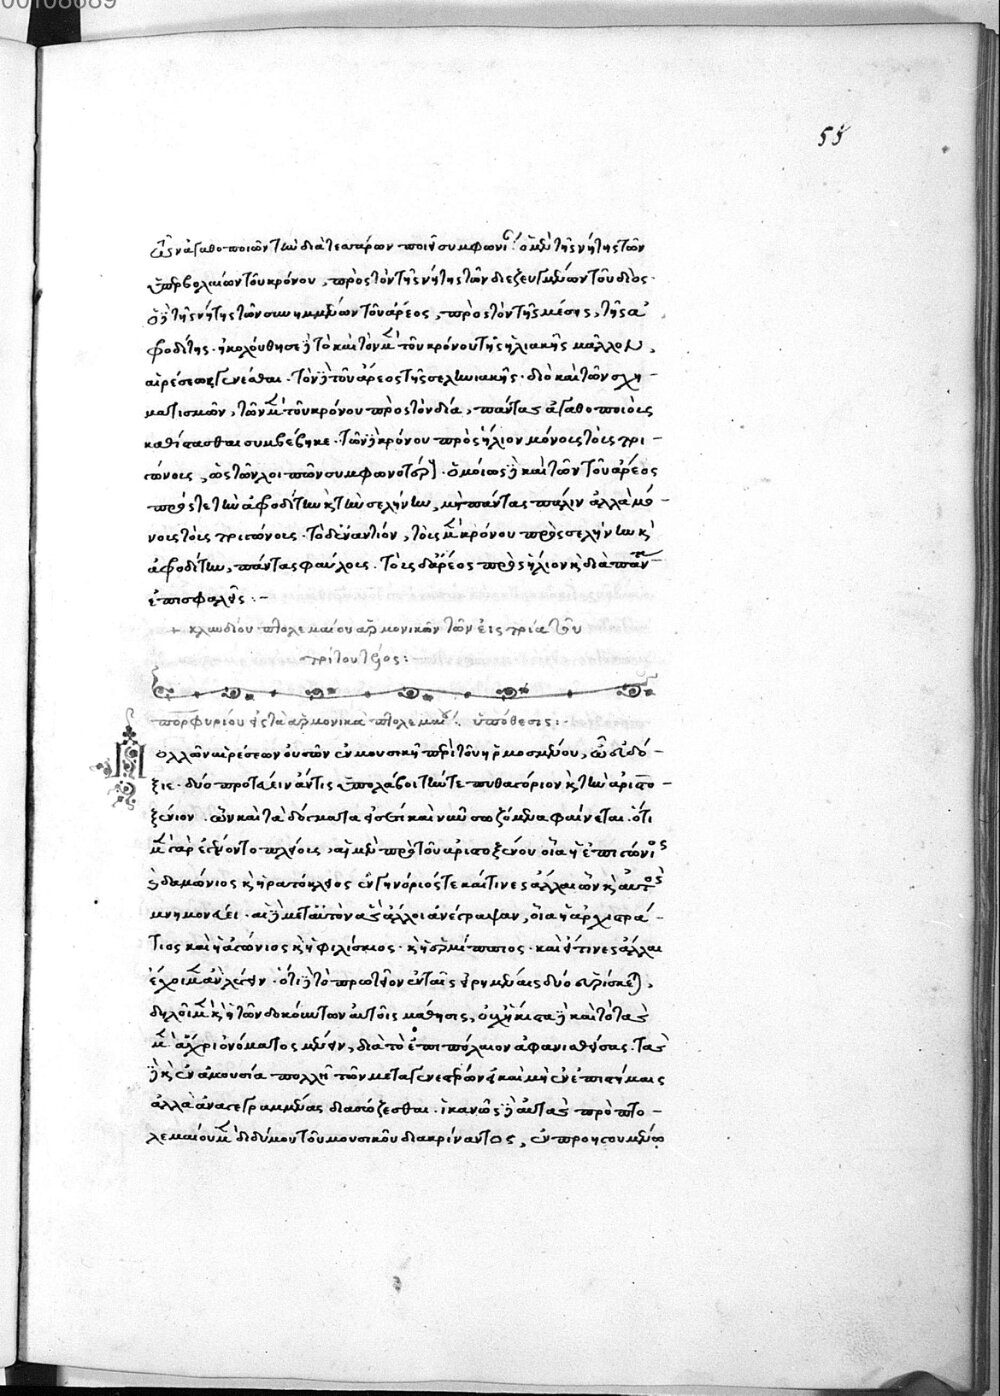 00108689
55
τῶν ἀγαθοποιῶν τὴν διὰ τεσσάρων ποιεῖ συμφωνί· ὁ μὲν τῆς νήτης τῶν
ὑπερβολαίων τοῦ κρόνου, πρὸς τὸν τῆς νήτης τῶν διεζευγμένων τοῦ διός·
ὁ δὲ τῆς νήτης τῶν συνημμένων τοῦ ἄρεος, πρὸς τὸν τῆς μέσης, τῆς ἀ
φροδίτης· ἠκολούθησε δὲ τὸ καὶ τὸν μὲν τοῦ κρόνου τῆς ἡλιακῆς μᾶλλον,
αἱρέσεως γενέσθαι· τὸν δὲ τοῦ ἄρεος τῆς σεληνιακῆς· διὸ καὶ τῶν σχη-
ματισμῶν, τῶν μὲν τοῦ κρόνου πρὸς τὸν δία, πάντας ἀγαθοποιοὺς
καθίστασθαι συμβέβηκε· τῶν δὲ κρόνου πρὸς ἥλιον μόνους τοὺς τρι-
γώνους, ὡς τῶν λοιπῶν συμφωνοτέρους· ὁμοίως δὲ καὶ τῶν τοῦ ἄρεος
πρός τε τὴν ἀφροδίτην καὶ τὴν σελήνην, μὴ πάντας πάλιν ἀλλὰ μό-
νους τοὺς τριγώνους· τὸ δ' ἐναντίον, τοὺς μὲν κρόνου πρὸς σελήνην καὶ
ἀφροδίτην, πάντας φαύλους· τοὺς δ' ἄρεος πρὸς ἥλιον καὶ δία πάντας
ἐπισφαλεῖς :-
+ κλαυδίου πτολεμαίου ἁρμονικῶν τῶν εἰς τρία τοῦ
τρίτου τέλος :
πορφυρίου εἰς τὰ ἁρμονικὰ πτολεμαίου. ὑπόθεσις :-
Πολλῶν αἱρέσεων οὐσῶν ἐν μουσικῇ περὶ τοῦ ἡρμοσμένου, ὦ εὐδό-
ξιε· δύο πρωτεύειν ἄν τις ὑπολάβοι τήν τε πυθαγόριον καὶ τὴν ἀριστο-
ξένιον· ὧν καὶ τὰ δόγματα εἰσέτι καὶ νῦν σωζόμενα φαίνεται· ὅτι
μὲν γὰρ ἐγένοντο πλείους, αἱ μὲν πρὸ τοῦ ἀριστοξένου οἷα ἡ ἐπιγόνιος
ἢ δαμώνιος καὶ ἡ ἐρατόκλειος ἐπηγόνιός τε καί τινες ἄλλαι ὧν καὶ αὐτὸς
μνημονεύει· αἱ δὲ μετ' αὐτὸν ἃς ἄλλοι ἀνέγραψαν, οἷα ἡ ἀρχεστρά-
τιος καὶ ἡ ἀγώνιος καὶ ἡ φιλίσκιος· καὶ ἡ ἑρμίππιος· καὶ εἴ τινες ἄλλαι
ἔχοιμεν ἂν λέγειν· ὅτι δὲ τὸ πρωτεῖον ἐν ταῖς εἰρημέναις δύο εὑρίσκεται,
δηλοῖ μὲν καὶ ἡ τῶν δοκούντων αὐτοῖς μάθησις, οὐχ ἥκιστα δὲ καὶ τὸ τὰς
μὲν ἄχρι ὀνόματος μένειν, διὰ τὸ ἐπιπόλαιον ἀφανισθείσας· τὰς
δὲ καὶ ἐν ἀμουσίᾳ πολλῇ τῶν μεταγενεστέρων εἰ καὶ μὴ ἐν ἐπιστήμαις
ἀλλὰ ἀναγεγραμμένας διασώζεσθαι· ἱκανῶς δὲ αὐτὰς πρὸ πτο-
λεμαίου μὲν διδύμου τοῦ μουσικοῦ διακρίναντος, ἐν προηγουμένῳ